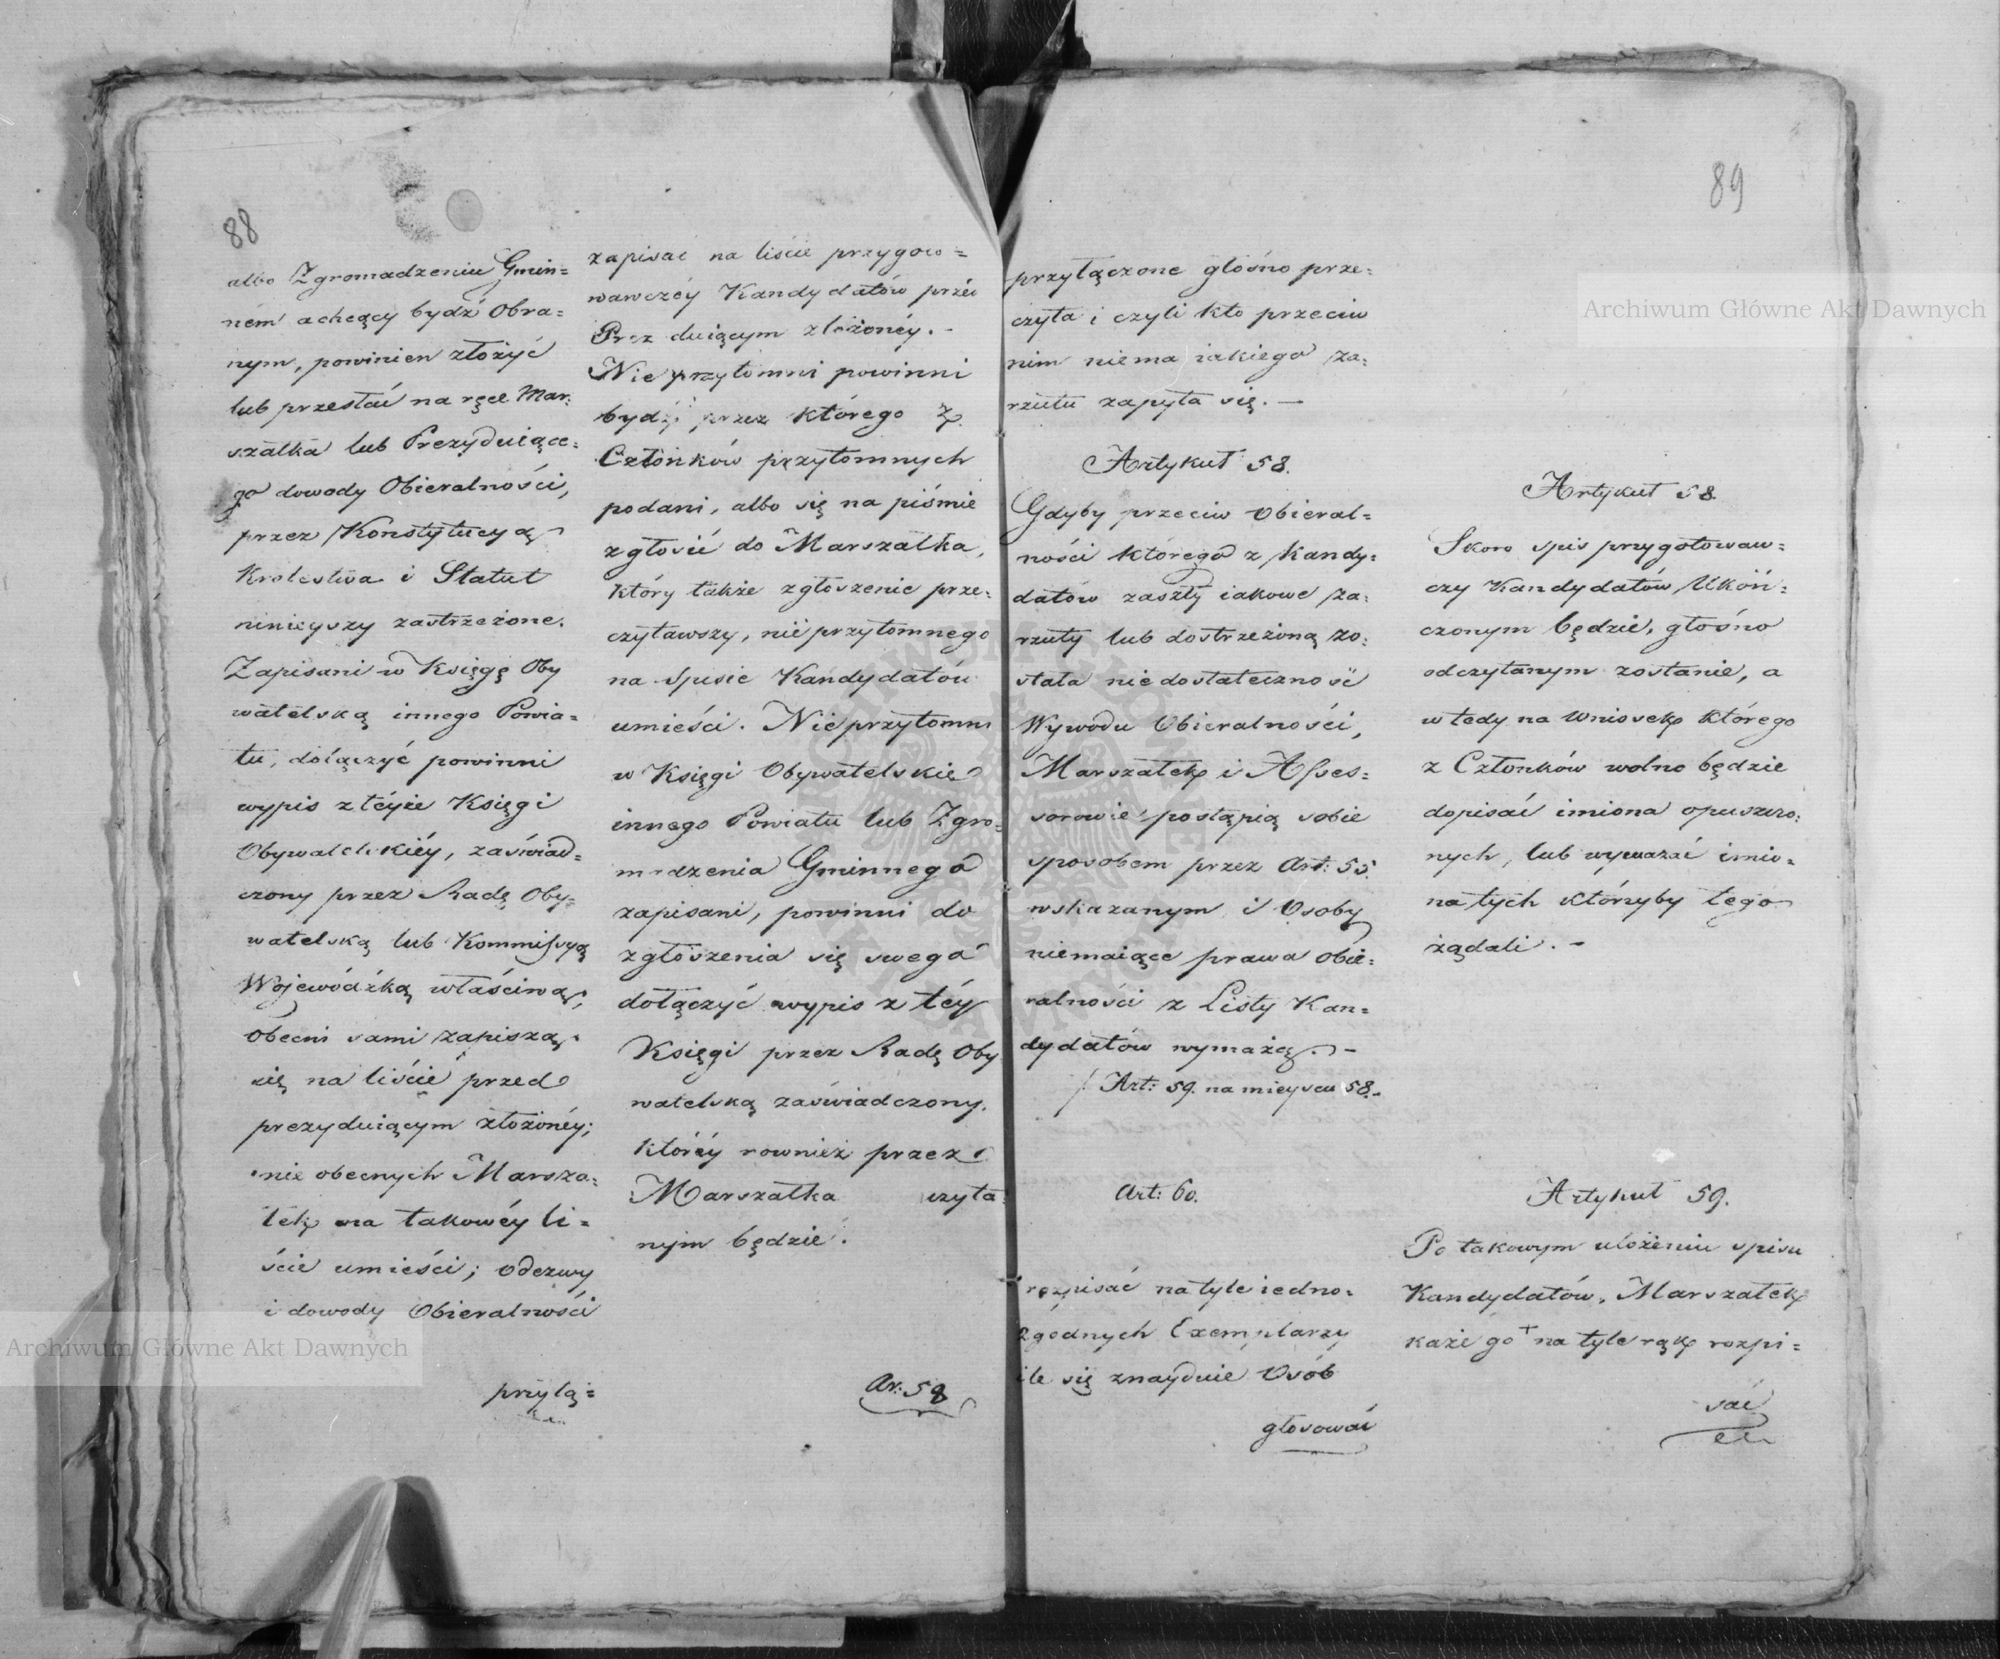 88
albo Zgromadzeniu Gmin=
ném a chcący bydź Obra=
nym, powinien złożyć
lub przesłać na ręce Mar=
szałka lub Prezyduiące=
go dowody Obieralności,
przez Konstytucyą
Krolestwa i Statut
ninieyszy zastrzeżone.
Zapisani w Księgę Oby
watelską innego Powia=
tu, dołączyć powinni
wypis z téyże Księgi
Obywatelskiéy, zaświad=
czony przez Radę Oby=
watelską lub Kommissyą
Wojewódzką właściwą;
obecni sami zapiszą
się na liście przed
prezyduiącym złożonéy;
nie obecnych Marsza=
łek na takowéy li=
ście umieści; odezwy
i dowody Obieralności
przyłą=
zapisać na liście przygow=
wawczéy Kandydatów przéd
Prez duiącym złożonéy. -
Nie przytomni powinni
bydź przez którego z
Członków przytomnych
podani, albo się na piśmie
zgłosić do Marszałka,
który także zgłoszenie prze=
czytawszy, nieprzytomnego
na spisie Kandydatów
umieści. Nieprzytomni
w Księgi Obywatelskie
innego Powiatu lub Zgro=
madzenia Gminnego
zapisani, powinni do
zgłoszenia się swego
dołączyć wypis z téy
Księgi przez Radę Oby
watelską zaświadczony,
któréy rownież przez
Marszałka czyta
nym będzie.
Ar: 58
89
przyłączone głośno prze=
czyta i czyli kto przeciw
nim niema iakiego za=
rzutu zapyta się. —
Artykuł 58.
Gdyby przeciw Obieral=
ności którego z Kandy=
datów zaszły iakowe za=
rzuty lub dostrzeżoną zo=
stała niedostateczność
Wywodu Obieralności,
Marszałek i Asses=
sorowie postąpią sobie
sposobem przez Art: 55.
wskazanym i Osoby
niemaiące prawa Obie=
ralności z Listy Kan=
dydatów wymażą. —
/ Art: 59. na mieyscu 58. -
Art: 60.
rozpisać na tyle iedno=
zgodnych Exemplarzy
ile się znayduie Osób
głosować
Artykuł 58.
Skoro spis przygotowaw=
czy Kandydatów Ukoń=
czonym będzie, głośno
odczytanym zostanie, a
wtedy na wniosek którego
z Członków wolno będzie
dopisać imiona opuszczo=
nych, lub wymazać imio=
na tych którzyby tego
żądali. —
Artykuł 59.
Po takowym ułożeniu spisu
Kandydatów, Marszałek
każe go + na tyle rąk rozpi=
sać
Archiwum Główne Akt Dawnych
Archiwum Główne Akt Dawnych